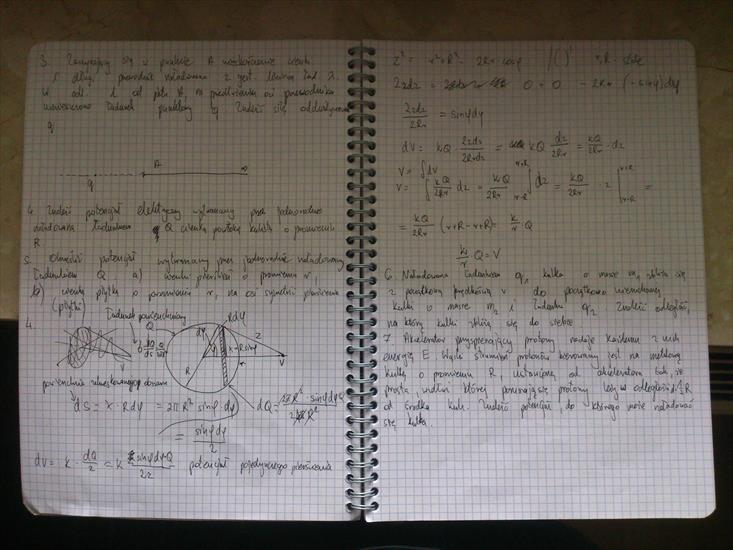 3. Zaczynający się w punkcie A nieskończenie cienki
i długi przewodnik naładowano z gęst. liniową ład. λ.
W odl. L od pktu A, na przedłużeniu osi przewodnika
umieszczono ładunek punktowy q. Znaleźć siłę oddziaływania
q
A
q
4. Znaleźć potencjał elektryczny wytwarzany przez jednorodnie
naładowaną ładunkiem Q cienką powłokę kulistą o promieniu
R.
5. Określić potencjał wytwarzany przez jednorodnie naładowany
ładunkiem Q a) cienki pierścień o promieniu r,
b) cienką płytkę o promieniu r, na osi symetrii pierścienia
(płytki)
4.
Ładunek powierzchniowy
Q
Rdφ
dφ
z
x = R sinφ
R
r
V
powierzchnia zakreskowanego obszaru
dS = x · Rdφ = 2πR² sinφ · dφ
= sinφdφ / 2
dV = k · dQ/z = k sinφdφ·Q / 2z potencjał pojedynczego pierścienia
z² = r² + R² - 2Rr · cosφ /( )' r, R - stałe
2zdz = 0 + 0 - 2Rr (-sinφ)dφ
2zdz / 2Rr = sinφdφ
dV = kQ · 2zdz / 2Rrz = kQ dz / 2Rr = kQ / 2Rr · dz
V = ∫dV
V = ∫ kQ / 2Rr dz = kQ / 2Rr ∫ dz = kQ / 2Rr · z | =
= kQ / 2Rr (r+R-r+R) = k/r · Q
k/r · Q = V
6. Naładowana ładunkiem q₁ kulka o masie m₁ zbliża się
z początkową prędkością v do początkowo nieruchomej
kulki o masie m₂ i ładunku q₂. Znaleźć odległość,
na którą kulki zbliżą się do siebie.
7. Akcelerator przyspieszający protony nadaje każdemu z nich
energię E. Wąski strumień protonów kierowany jest na metalową
kulkę o promieniu R, ustawioną od akceleratora tak, że
prosta, wzdłuż której poruszają się protony leży w odległości ½R
od środka kuli. Znaleźć potencjał, do którego może naładować
się kulka.